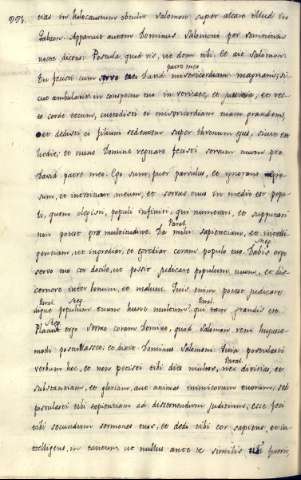 cias in holocaustum obtulit Salomon super altare illud in
Gabaon. Apparuit autem Dominus Salomoni per somnium
nocte dicens: Postula quod vis, ut dem tibi. Et ait Salomon:
patre meo
Tu fecisti cum David misericordiam magnam, si
cut ambulavit in conspectu tuo in veritate, et justitia, et rec
to corde tecum, custodisti ei misericordiam tuam grandem,
et dedisti ei filium sedentem super thronum ejus, sicut est
hodie; et nunc Domine regnare fecisti servum tuum pro
David patre meo. Ego sum puer parvulus, et ignorans egre
sum, et introitum meum, et servus tuus in medio est popu
li, quem elegisti, populi infiniti, qui numerari, et supputari
Paral.
non potest prae multitudine. Da mihi sapientiam, et intelli
Reg.
gentiam, ut ingrediar, et egrediar coram populo tuo. Dabis ergo
servo tuo cor docile, ut possit judicare populum tuum, et dis
cernere inter bonum, et malum. Quis enim potest judicare
Paral. Reg. Paral.
digne populum tuum hunc multum, qui tam grandis est.
Reg.
Placuit ergo sermo coram Domino, quod Salomon rem hujusce
modi postulasset, et dixit Dominus Salomoni: Quia postulasti
Paral.
verbum hoc, et non petisti tibi dies multos, nec divitias, et
substantiam, et gloriam, aut animas inimicorum tuorum, sed
postulasti tibi sapientiam ad discernendum judicium, ecce feci
tibi secundum sermones tuos, et dedi tibi cor sapiens, et in
telligens, in tantum ut nullus ante te similis tibi fuerit,